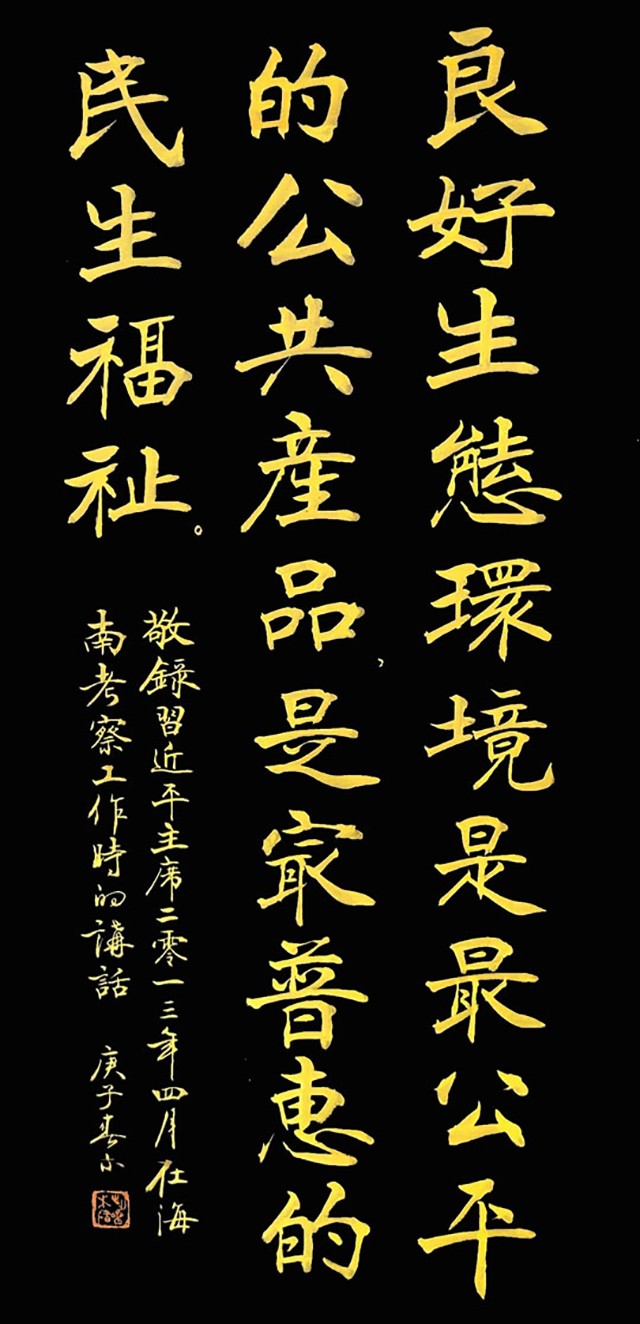 良好生態環境是最公平
的公共産品，是冣普惠的
民生福祉。
敬錄習近平主席二零一三年四月在海
南考察工作時的講話
庚子春